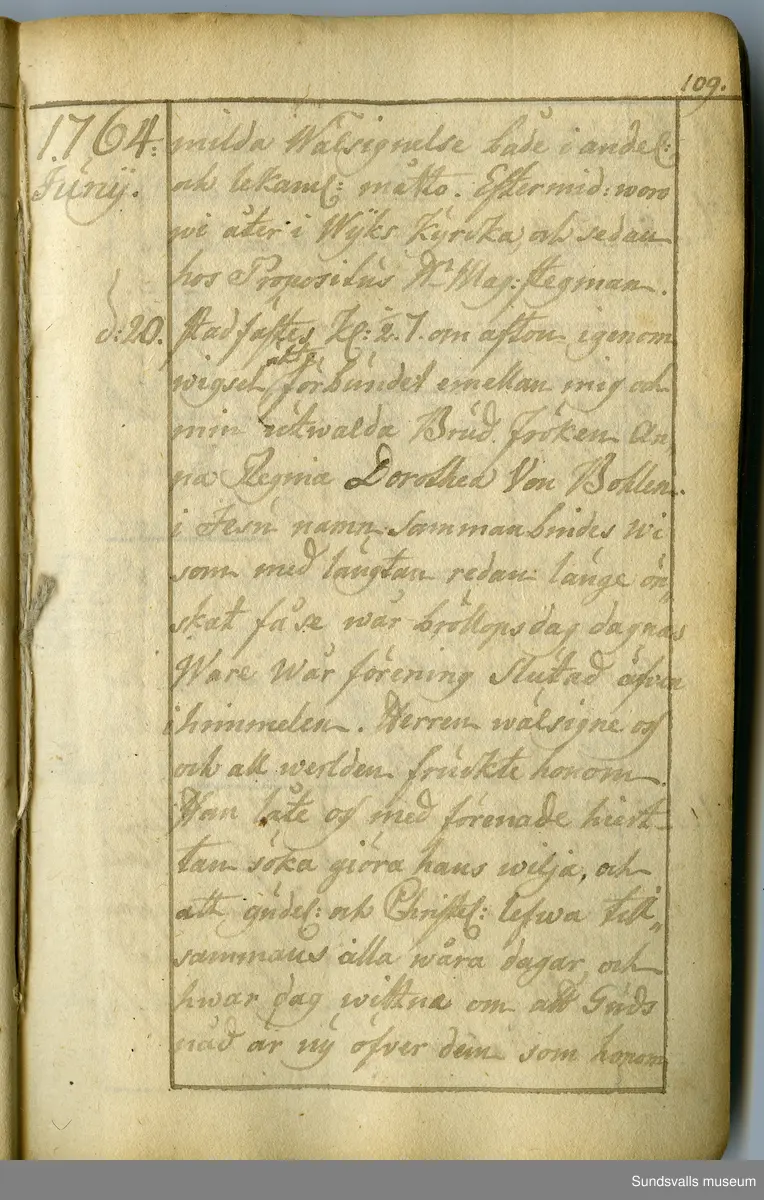 109.
1764.
Junÿ.
milda Wälsignelse både i andel:
och lekaml: måtto. Eftermid: woro
wi åter i Wÿks Kÿrcka, och sedan
hos Propositus Hr Mag: Stegman.
d: 20. Stadfästes Kl: ½ 7. om afton igenom
wigsel, förbundet emellan mig och
min utwalda Brud Fröken An„
na Regina Dorothea Von Bohlen.
i Jesu namn sammanbindes wi
som med längtan redan länge ön„
skat få se wår bröllopsdag dagnas
Ware wår förening slutad äfven
i himmelen. Herren wälsigne oss
och all werlden fruckte honom.
Han låte oss med förenade hiert„
tan söka giöra hans wilja, och
att gudel: och Christel: lefwa till„
sammans alla wåra dagar, och
hwar dag wittna om att Guds
nåd är nÿ öfver dem som honom
Sundsvalls museum